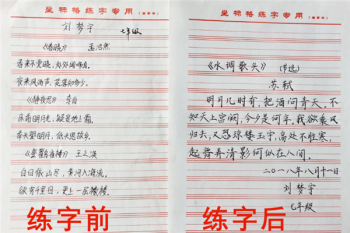 星标格练字专用
刘梦宁
七年级
《春晓》 孟浩然
春来不觉晓,处处闻啼鸟。
夜来风雨声,花落知多少。
《静夜思》 李白
床前明月光,疑是地上霜。
举头望明月,低头思故乡。
《登鹳雀楼》 王之涣
白日依山尽,黄河入海流。
欲穷千里目,更上一层楼。
练字前
星标格练字专用
《水调歌头》(节选)
苏轼
明月几时有,把酒问青天,不
知天上宫阙,今夕是何年,我欲乘风
归去,又恐琼楼玉宇,高处不胜寒,
起舞弄清影何似在人间。
二〇一八年八月十一日
刘梦宁
七年级
练字后